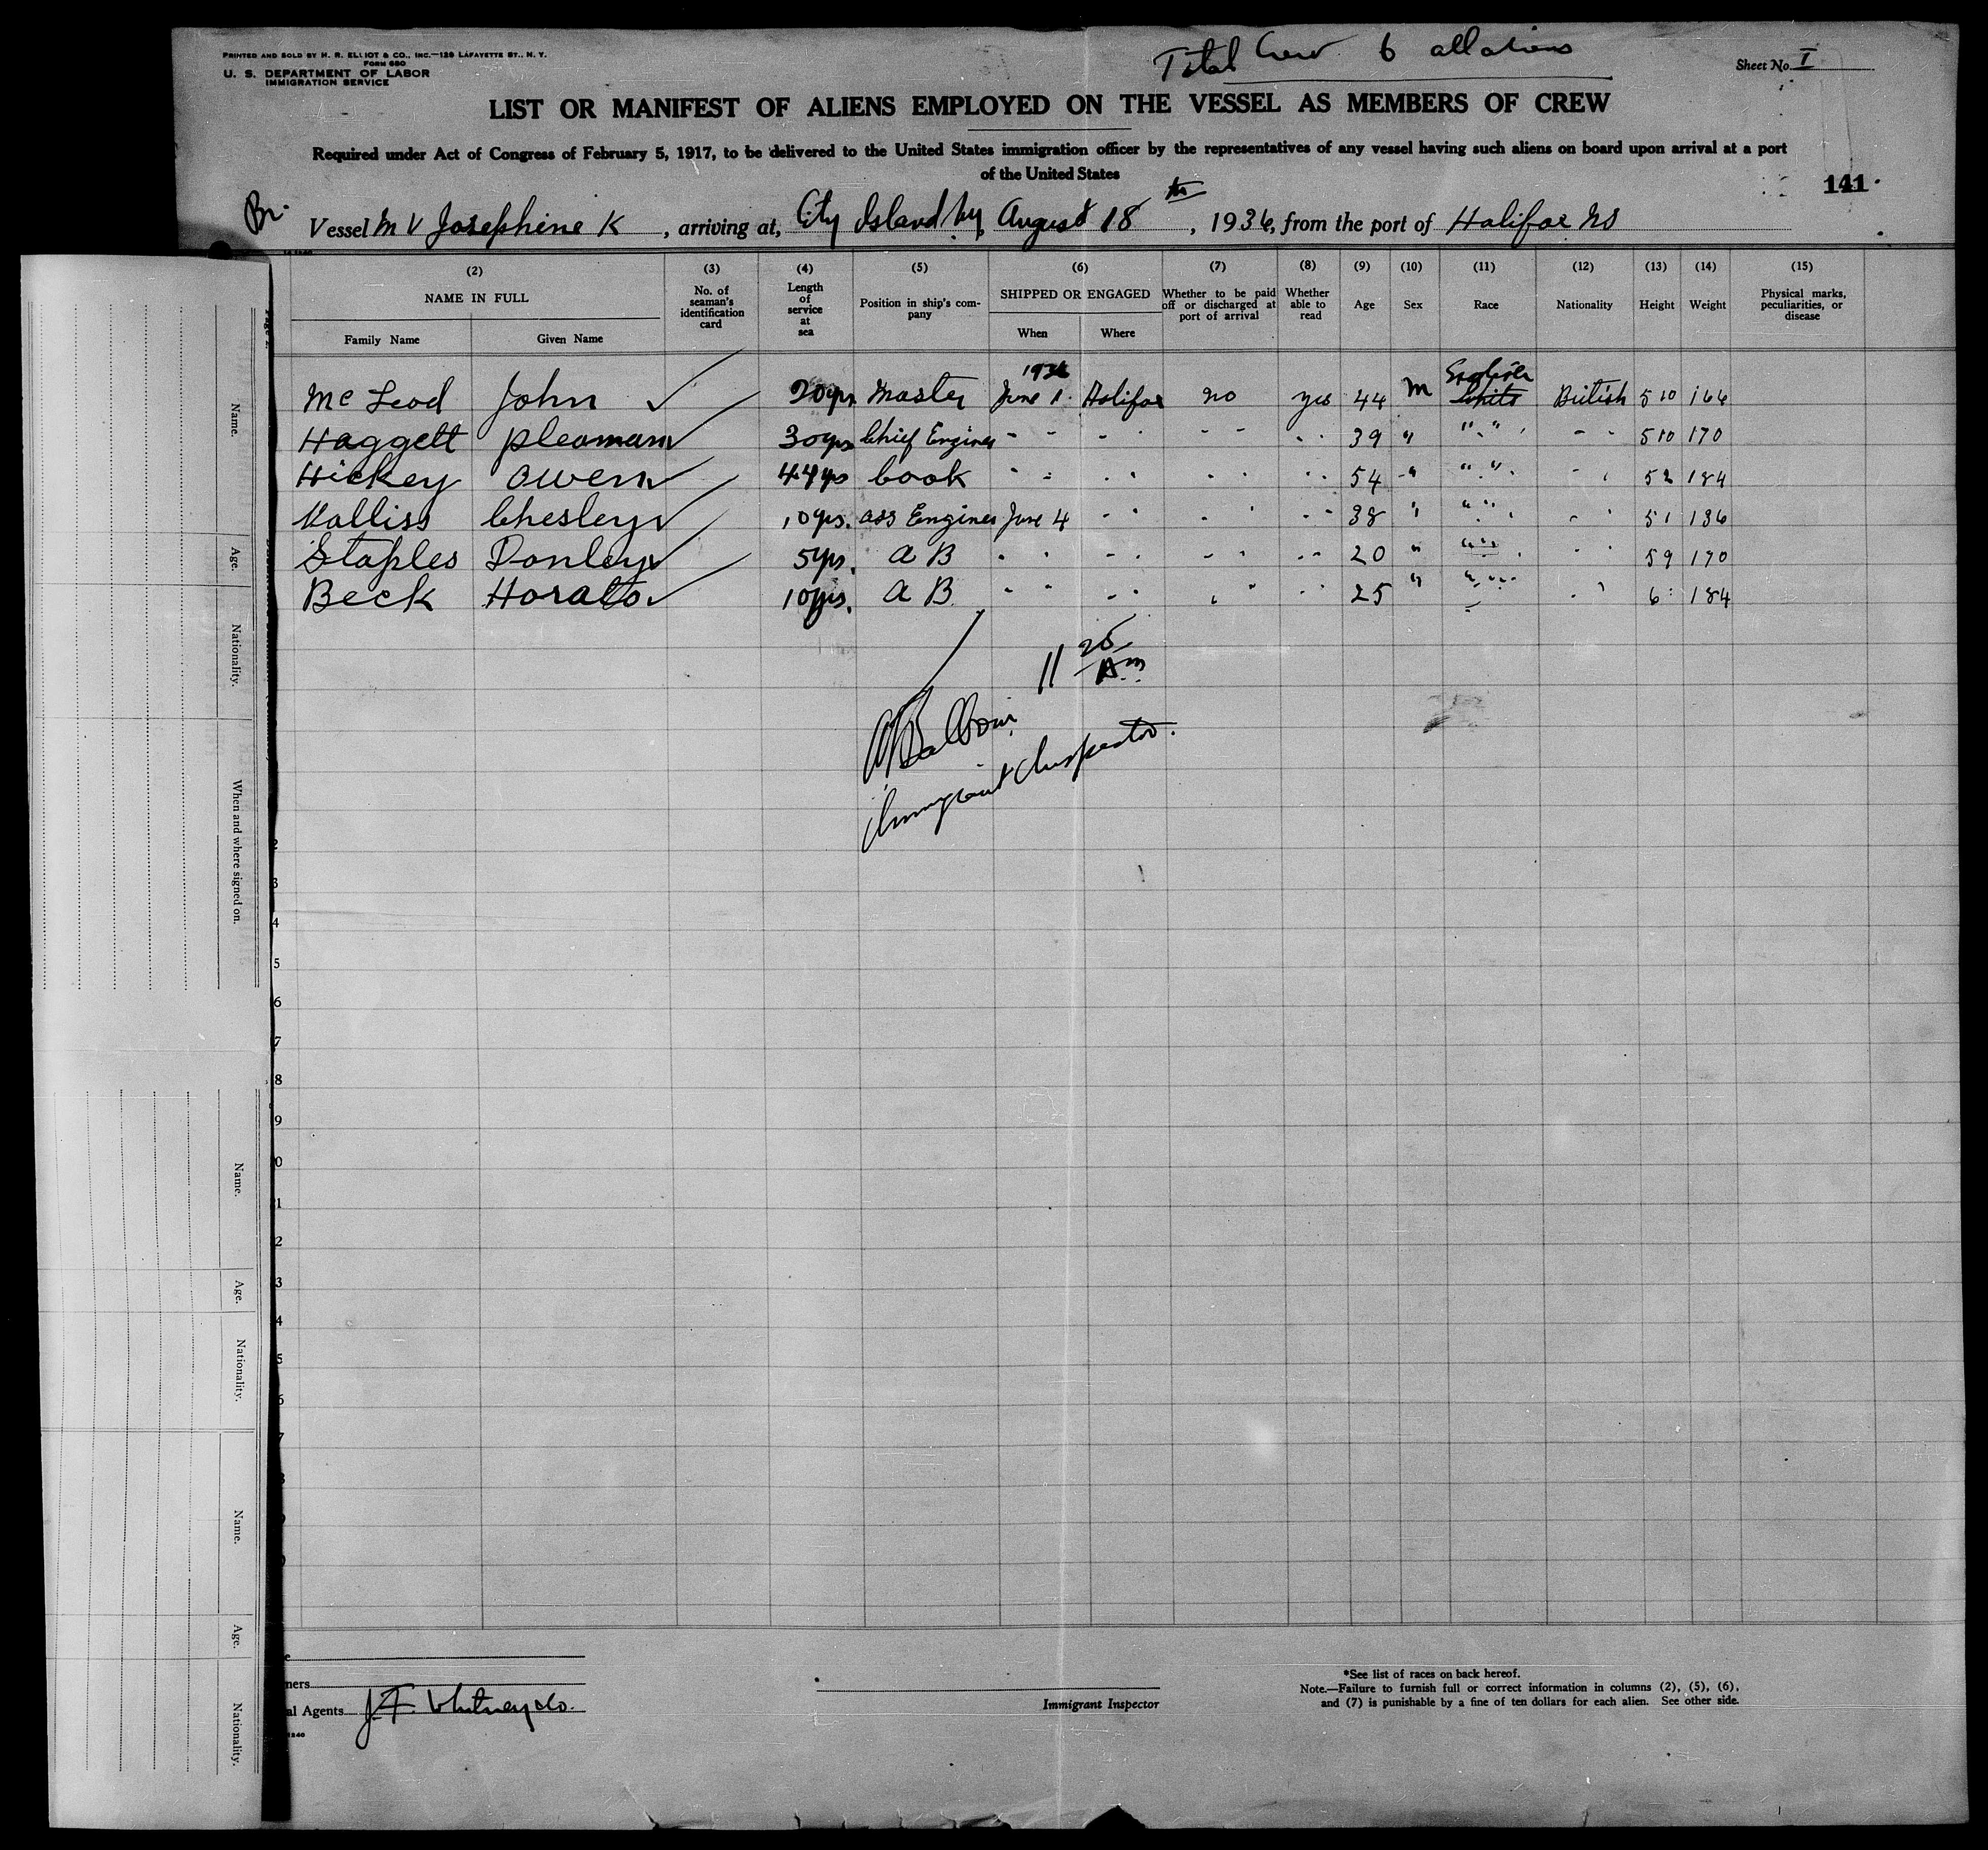 PRINTED AND SOLD BY H. R. ELLIOT & CO., INC.—129 LAFAYETTE ST., N. Y.
FORM 680
U. S. DEPARTMENT OF LABOR
IMMIGRATION SERVICE
Total Crew 6 all aliens
Sheet No. I
LIST OR MANIFEST OF ALIENS EMPLOYED ON THE VESSEL AS MEMBERS OF CREW
Required under Act of Congress of February 5, 1917, to be delivered to the United States immigration officer by the representatives of any vessel having such aliens on board upon arrival at a port
of the United States
141
Br.
Vessel M V Josephine K, arriving at, City Island ny August 18th, 1936, from the port of Halifax NS
(2) (3) (4) (5) (6) (7) (8) (9) (10) (11) (12) (13) (14) (15)
NAME IN FULL
Family Name Given Name
No. of seaman's identification card
Length of service at sea
Position in ship's company
SHIPPED OR ENGAGED
When Where
Whether to be paid off or discharged at port of arrival
Whether able to read
Age Sex Race Nationality Height Weight
Physical marks, peculiarities, or disease
1936 English
McLeod John 20yrs Master June 1 Halifax no yes 44 M White British 5 10 166
Haggett pleaman 30yrs Chief Engineer " " " " " " " " 39 " " " " " 5 10 170
Hickey Owen 44yrs Cook " " " " " " " " 54 " " " " " 5 2 184
Chesley 10yrs. ass Engineer June 4 " " " " " " 38 " " " " " 5 1 136
Staples Donley 5yrs. A B " " " " " " " " 20 " " " " " 5 9 170
Beck Horato 10yrs. A B " " " " " " " " 25 " " " " " 6 184
11 25 Am
Immigrant Inspector.
2
3
4
5
6
7
8
9
0
1
2
3
4
5
6
7
Name.
Age.
Nationality.
When and where signed on.
Name.
Age.
Nationality.
Name.
Age.
Nationality.
ners
al Agents J. F. Whitney & Co.
1240
Immigrant Inspector
*See list of races on back hereof.
Note.—Failure to furnish full or correct information in columns (2), (5), (6),
and (7) is punishable by a fine of ten dollars for each alien. See other side.